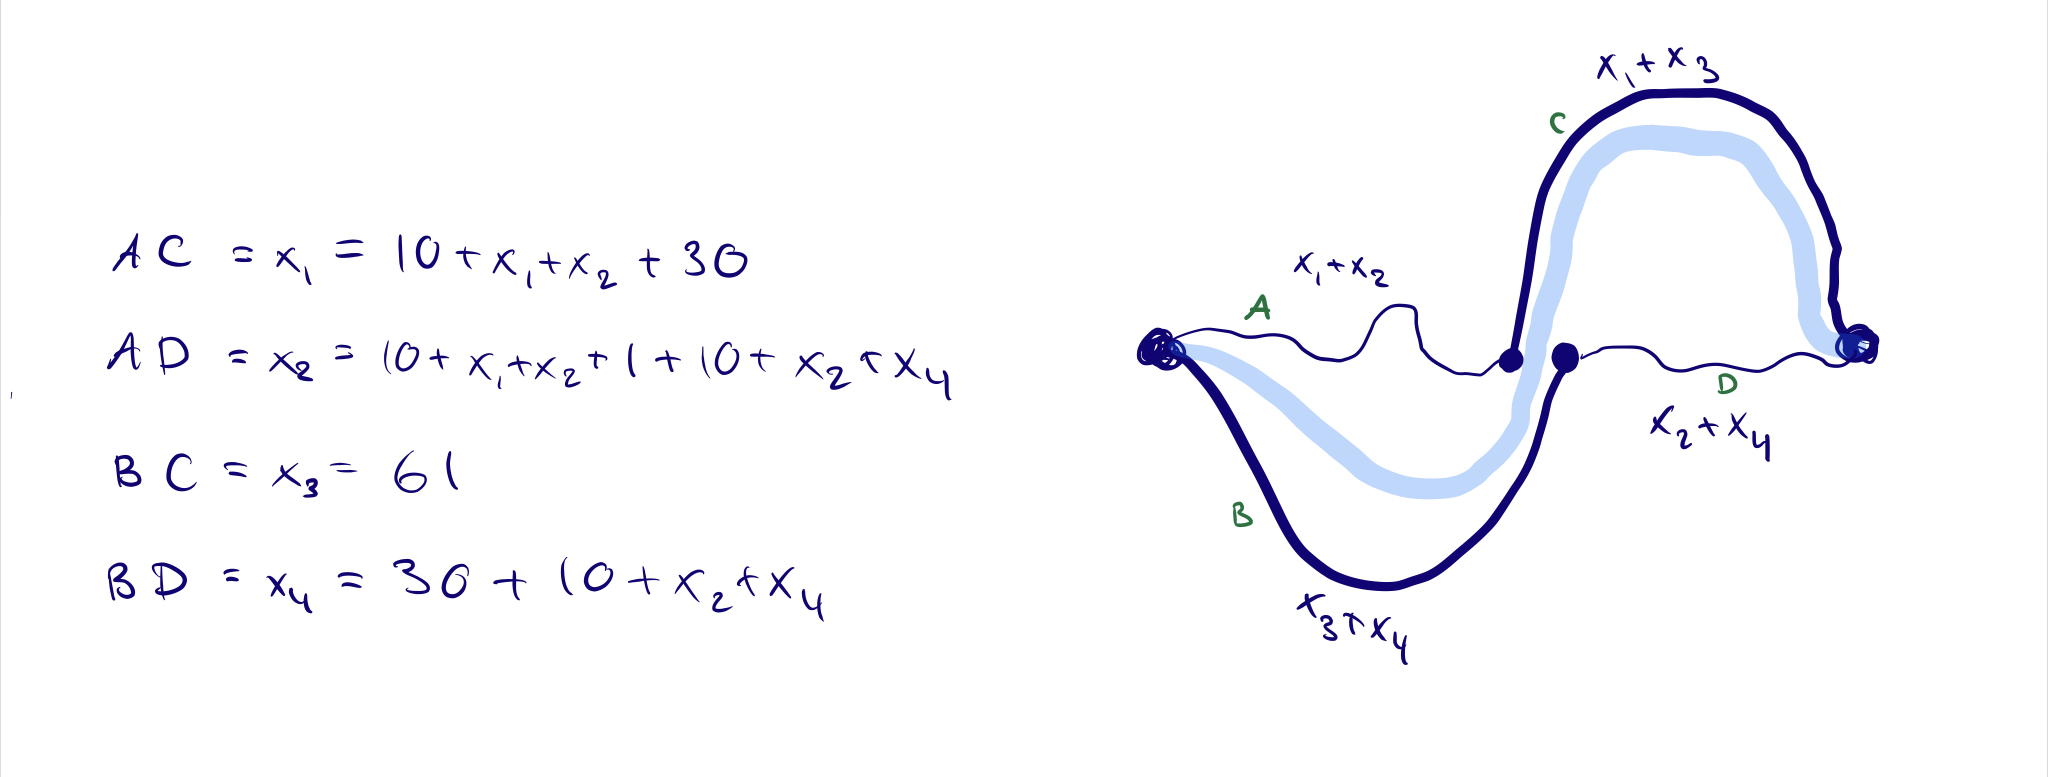 AC = x₁ = 10 + x₁ + x₂ + 30
AD = x₂ = 10 + x₁ + x₂ + 1 + 10 + x₂ + x₄
BC = x₃ = 61
BD = x₄ = 30 + 10 + x₂ + x₄
x₁ + x₃
C
x₁ + x₂
A
D
x₂ + x₄
B
x₃ + x₄